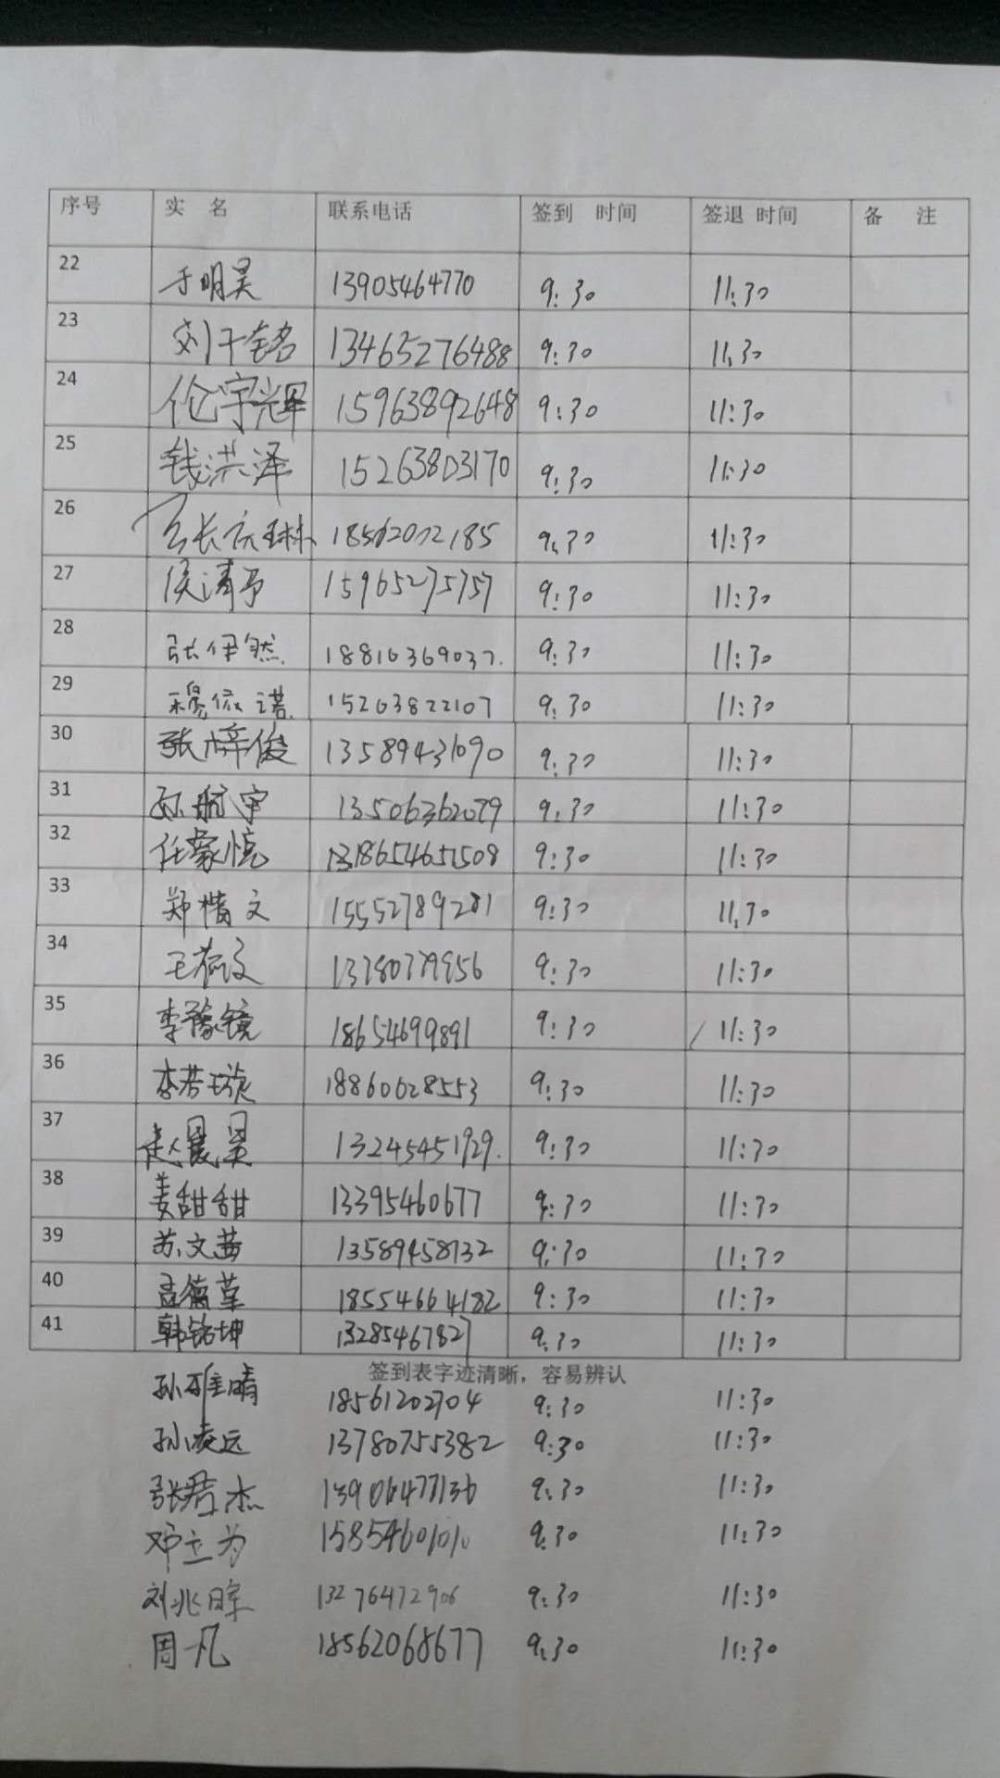 序号 实 名 联系电话 签到 时间 签退 时间 备 注
22 于明昊 13905464770 9:30 11:30
23 刘千铭 13465276488 9:30 11:30
24 伦宇辉 15963892648 9:30 11:30
25 钱洪泽 15263803170 9:30 11:30
26 9:30 11:30
27 侯清予 15965275757 9:30 11:30
28 张伊然 18816369037. 9:30 11:30
29 穆依诺 15263822107 9:30 11:30
30 张梓俊 13589431090 9:30 11:30
31 孙航宇 13506362079 9:30 11:30
32 任蒙悦 9:30 11:30
33 郑楷文 15552789281 9:30 11:30
34 9:30 11:30
35 李豫镜 18654699891 9:30 11:30
36 李若璇 18860628553 9:30 11:30
37 赵晨昊 13245451929. 9:30 11:30
38 姜甜甜 13395460677 9:30 11:30
39 苏文茜 13589458732 9:30 11:30
40 孟德堇 18554664182 9:30 11:30
41 韩铭坤 13285467827 9:30 11:30
签到表字迹清晰，容易辨认
孙雅晴 18561202704 9:30 11:30
孙凌远 13780755382 9:30 11:30
张君杰 13906477136 9:30 11:30
邓立为 15854601010 9:30 11:30
刘兆晖 13276472906 9:30 11:30
周一凡 18562068677 9:30 11:30